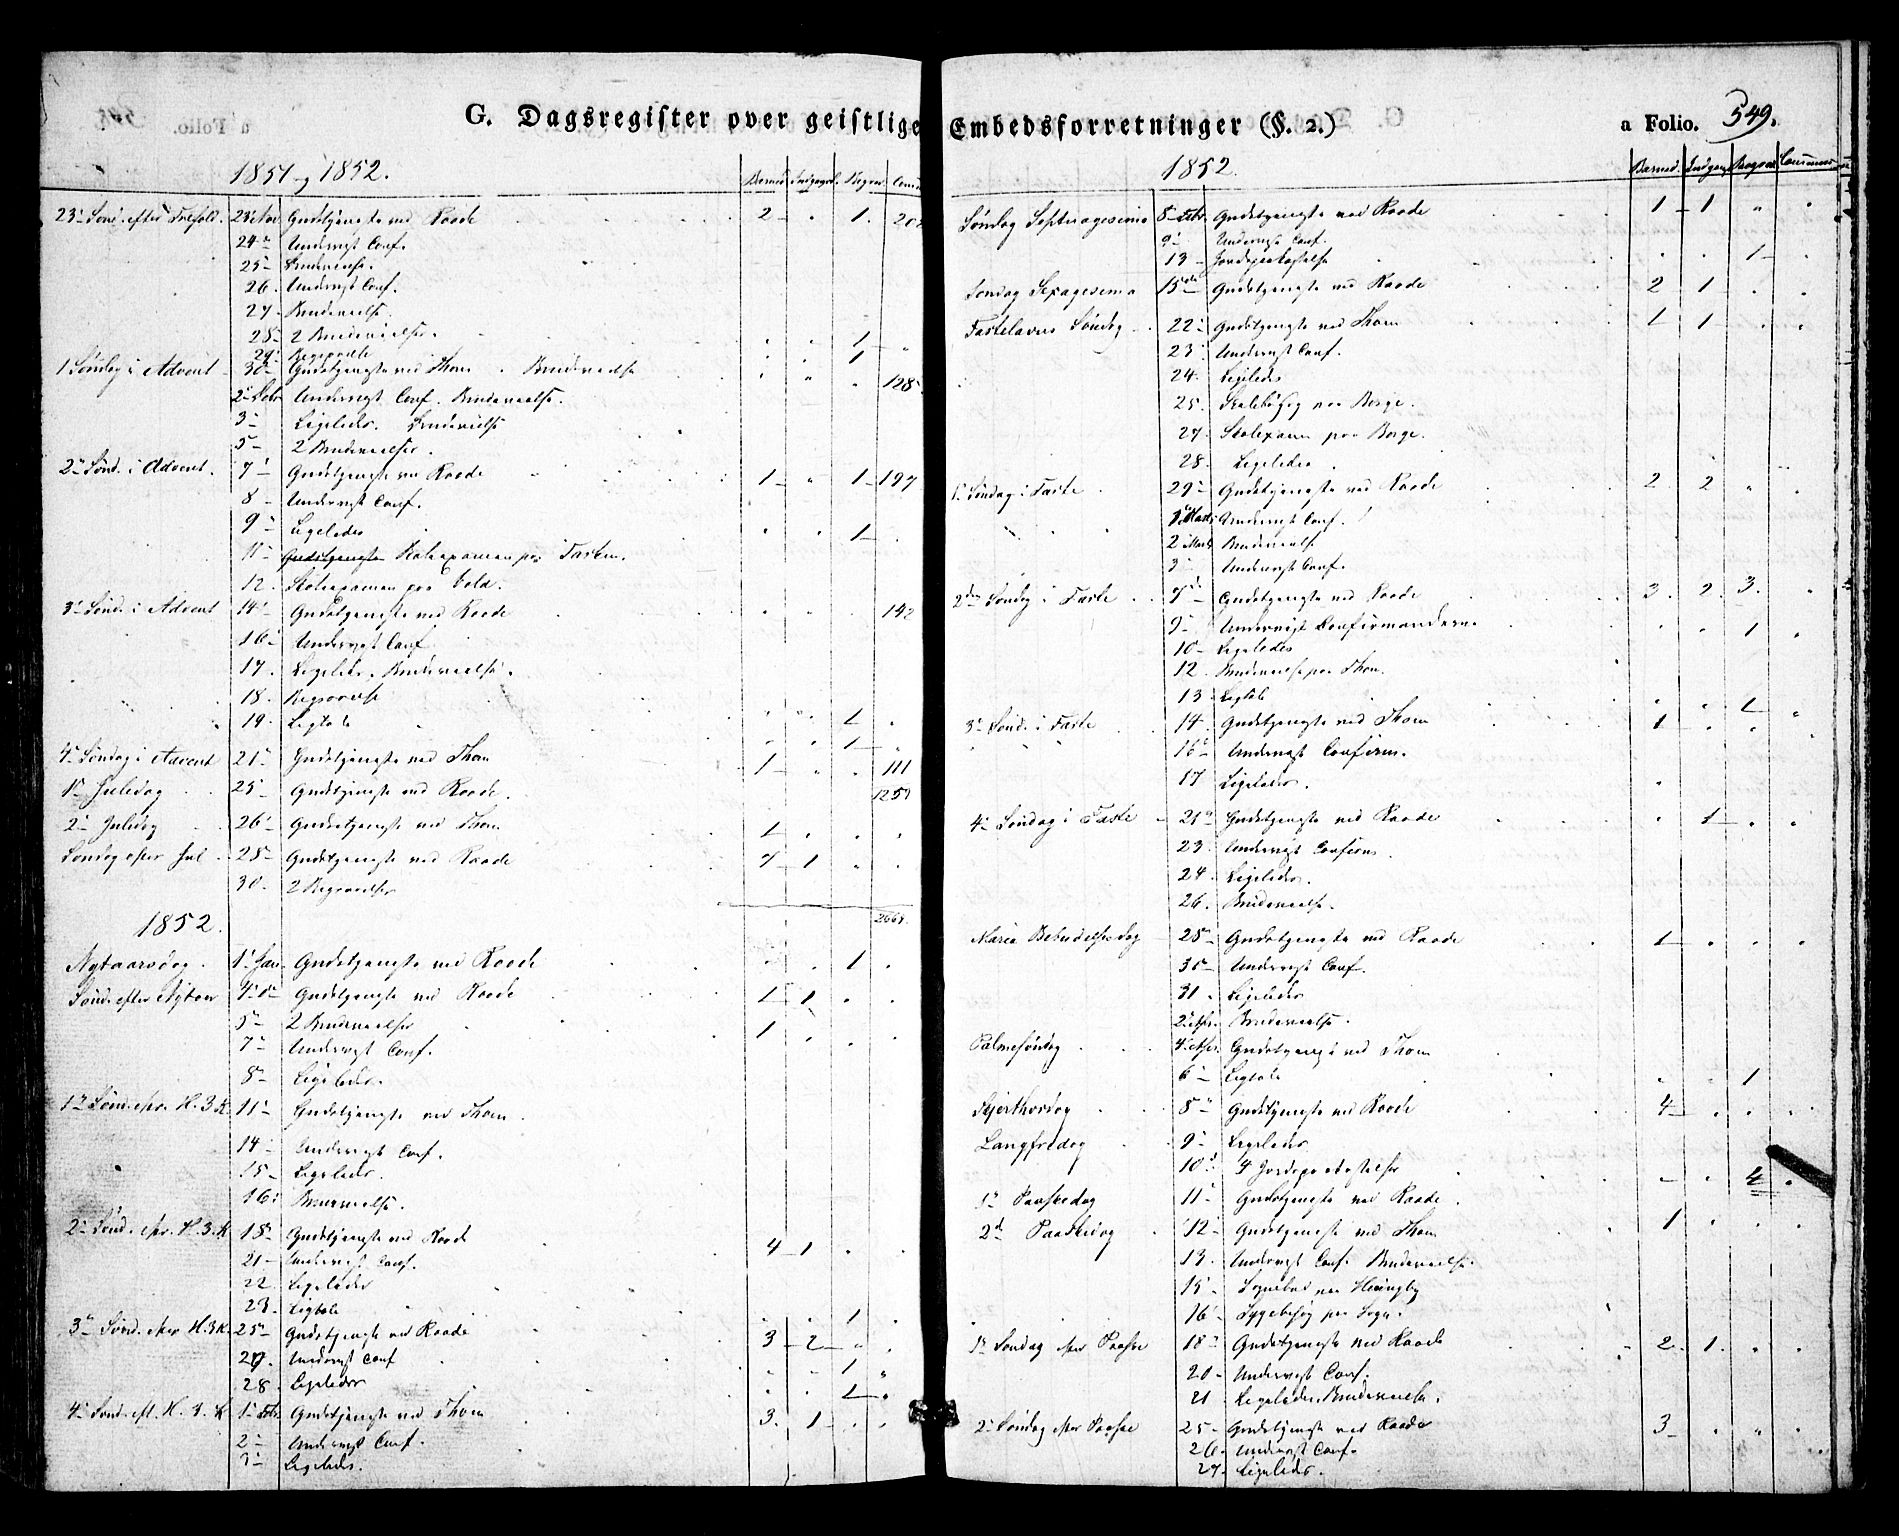 G. Dagsregister over geistlige Embedsforretninger (§. 2.)
a Folio. 549.
1851 og 1852.
Barned. Indgangsk. Begrav.
23 Sønd. efter Trefold. 23 Nov Gudstjeneste ved Raade 2 " 1.
24 Underviist Conf.
25 Brudevielse.
26. Underviist Conf.
27 Brudevielse.
28 2 Brudevielser. " " 1
29 1
1 Søndag i Advent 30 Gudstjeneste ved Thom Brudevielse " " " 128
2 Underviist Conf. Brudevielse.
3 Ligeledes. Brudevielse
5 2 Brudevielser.
2 Sønd. i Advent. 7 Gudstjeneste ved Raade 1 " 1 197
8 Underviist Conf.
9 Ligeledes " " 1
11 Gudstjeneste Skoleexamen paa
12. Skoleexamen paa
3 Sønd. i Advent 14 Gudstjeneste ved Raade 142
16 Underviist Conf
17. Ligeledes. Brudevielse.
18. Begravelse
19. Ligtale " " 1
" " 1
4 Søndag i Advent 21 Gudstjeneste ved Thom 1 " " 111
1 Juledag 25 Gudstjeneste ved Raade. 1251
2 Juledag 26 Gudstjeneste ved Thom 1
Søndag efter Jul 28 Gudstjeneste ved Raade 1
30. 2 Begravelser
1852.
Nytaarsdag. 1 Jan. Gudstjeneste ved Raade 1
Sønd. efter Nytaar 4 Gudstjeneste ved Raade 1 1
5 2 Brudevielser 1
7 Underviist Conf.
8 Ligeledes.
1 Sønd. efter H. 3 K. 11 Gudstjeneste ved Thom.
14 Underviist Conf.
15 Ligeledes.
16. Brudevielse.
2 Sønd. efter H. 3. K 18 Gudstjeneste ved Raade 4 1
21 Underviist Conf.
22 Ligeledes
23. Ligtale 1
3 Sønd. efter H. 3 K. 25 Gudstjeneste ved Raade 3 2
27. Underviist Conf 1
28. Ligeledes 1
4 Sønd. eft. H. 3. K 1 Febr Gudstjeneste ved Thom 3. 1
2 Underviist Conf.
3 Ligeledes.
1852.
Barned. Indgangsk. Begrav.
Søndag Septuagesima 8 Febr Gudstjeneste ved Raade 1 1 "
9 Underviist Conf.
13 Jordpaakastelse 1
Søndag Sexagesima 15 Gudstjeneste ved Raade 2 1
Fastelavns Søndag 22 Gudstjeneste ved Thom 1 1
23 Underviist Conf.
24. Ligeledes
25. paa Borge.
27. Skolexamen paa Borge.
28. Ligeledes.
1 Søndag i Faste 29 Gudstjeneste ved Raade 2 2
1 Marts Underviist Conf.
2 Marts Brudevielse
3 Underviist Conf.
2den Søndag i Faste 7 Gudstjeneste ved Raade 3. 2. 3.
9 Underviist Confirmanderne 1
10 Ligeledes
12. Brudevielse paa Thom.
13 Ligtale 1
3 Sønd. i Faste 14 Gudstjeneste ved Thom 1
16 Underviist Confirm.
17 Ligeledes.
4 Søndag i Faste 21 Gudstjeneste ved Raade 1
23. Underviist Confirm.
24 Ligeledes.
26. Brudevielse.
Maria Bebudelsesdag 28 Gudstjeneste ved Raade 1
30 Underviist Conf.
31 Ligeledes
2 Brudevielse.
Palmesøndag 4 Gudstjeneste ved Thom
6 Ligtale 1
Skjerthorsdag 8 Gudstjeneste ved Raade 4
Langfredag 9 Ligeledes
10 4 Jordpaakastelser 4
1 Paaskedag 11 Gudstjeneste ved Raade.
2d Paaskedag 12 Gudstjeneste ved Thom 1
13. Underviist Conf. Brudevielse.
15 Sognebud
16 Sygebesøg paa
1 Søndag efter Paaske 18 Gudstjeneste ved Raade 2 1.
20 Underviist Conf.
21 Ligeledes. Brudevielse.
2 Søndag efter Paaske 25 Gudstjeneste ved Raade 3
26. Underviist Conf.
27. Ligeledes.